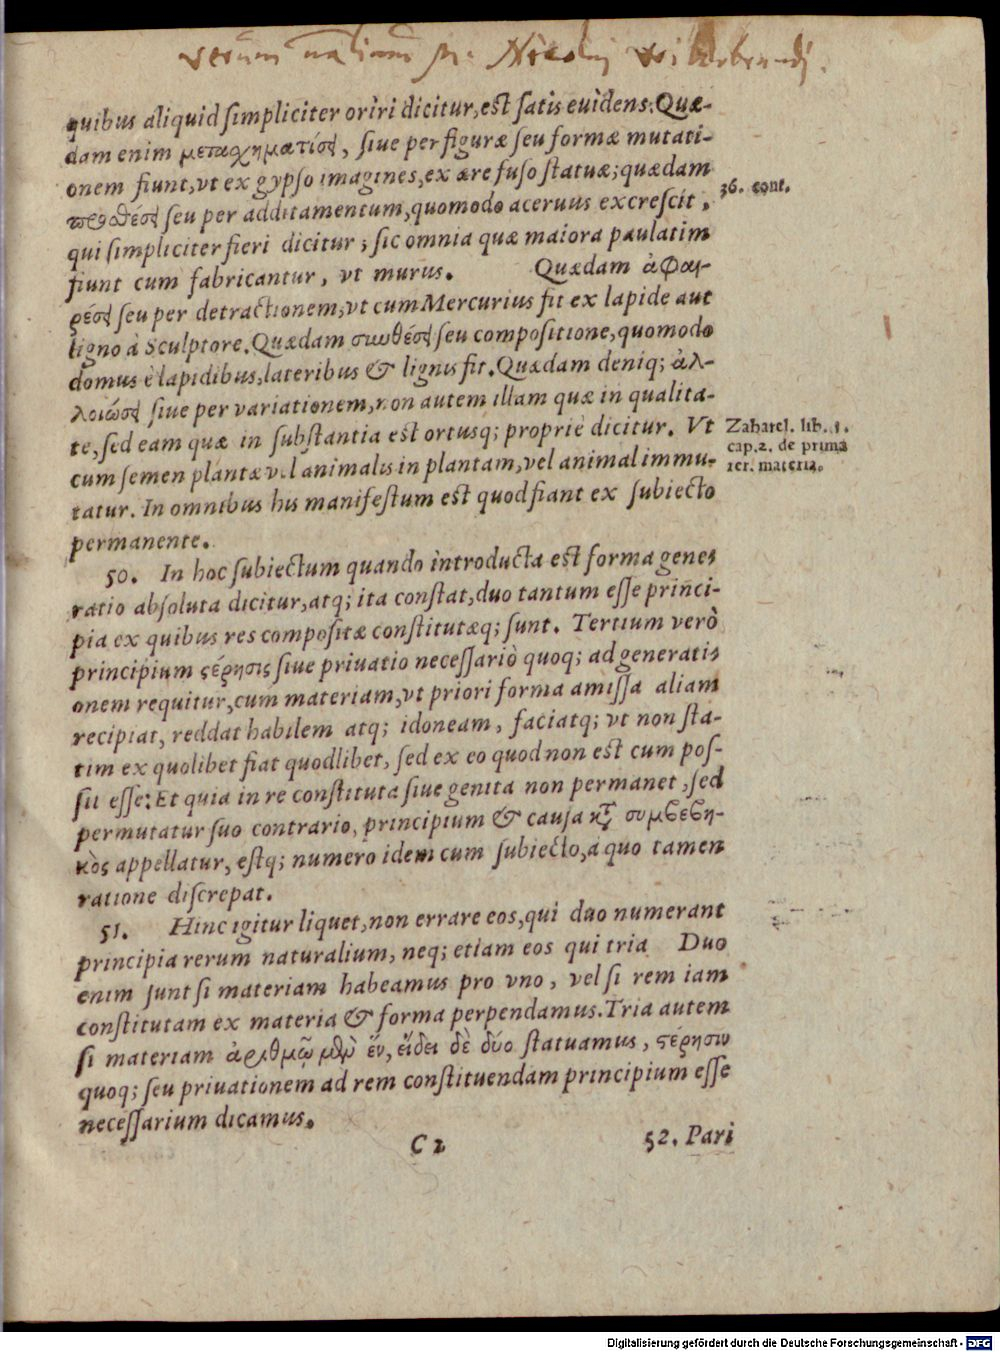 quibus aliquid ſimpliciter orìri dicitur, eſt ſatis euìdens: Quæ-
dam enim μετασχηματίσει, ſiue per figuræ ſeu formæ mutati-
onem fiunt, vt ex gypſo imagines, ex ære fuſo ſtatuæ; quædam
36. cont.
προσθέσει ſeu per additamentum, quomodo aceruus excreſcit,
qui ſimpliciter fieri dicitur; ſic omnia quæ maiora paulatim
fiunt cum fabricantur, vt murus. Quædam ἀφαι-
ρέσει ſeu per detractionem, vt cum Mercurius fit ex lapide aut
ligno à Sculptore. Quædam συνθέσει ſeu compoſitione, quomodo
domus è lapidibus, lateribus & lignis fit. Quædam deniq; ἀλ-
λοιώσει ſiue per variationem, non autem illam quæ in qualita-
te, ſed eam quæ in ſubſtantia eſt ortusq; propriè dicitur. Vt
Zabarel. lib. 1.
cap. 2. de prima
rer. materia.
cum ſemen plantæ vel animalis in plantam, vel animal immu-
tatur. In omnibus his manifeſtum eſt quod fiant ex ſubiecto
permanente.
50. In hoc ſubiectum quando introducta eſt forma gene
ratio abſoluta dicitur, atq; ita conſtat, duo tantum eſſe princi-
pia ex quibus res compoſitæ conſtitutæq; ſunt. Tertium verò
principium ςέρησις ſiue priuatio neceſſariò quoq; ad generati
onem requitur, cum materiam, vt priori forma amiſſa aliam
recipiat, reddat habilem atq; idoneam, faciatq; vt non ſta-
tim ex quolibet fiat quodlibet, ſed ex eo quod non eſt cum poſ-
ſit eſſe: Et quia in re conſtituta ſiue genita non permanet, ſed
permutatur ſuo contrario, principium & cauſa κτ̃ συμβεβη-
κὸς appellatur, eſtq; numero idem cum ſubiecto, à quo tamen
ratione diſcrepat.
51. Hinc igitur liquet, non errare eos, qui duo numerant
principia rerum naturalium, neq; etiam eos qui tria Duo
enim ſunt ſi materiam habeamus pro vno, vel ſi rem iam
conſtitutam ex materia & forma perpendamus. Tria autem
ſi materiam ἀριθμῷ μὲν ἕν, εἴδει δὲ δύο ſtatuamus, ςέρησιν
quoq; ſeu priuationem ad rem conſtituendam principium eſſe
neceſſarium dicamus.
C 2 52. Pari
Digitalisierung gefördert durch die Deutsche Forschungsgemeinschaft - DFG